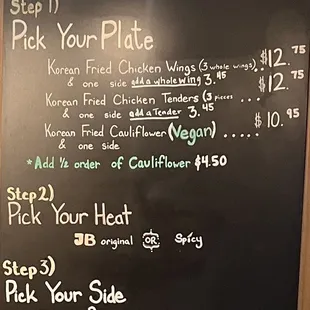 Step 1)
Pick Your Plate
Korean Fried Chicken Wings (3 whole wings).. $12.75
& one side add a whole wing 3.45
Korean Fried Chicken Tenders (3 pieces ... $12.75
& one side add a Tender 3.45
Korean Fried Cauliflower (Vegan) ..... $10.95
& one side
*Add ½ order of Cauliflower $4.50
Step 2)
Pick Your Heat
JB original OR Spicy
Step 3)
Pick Your Side